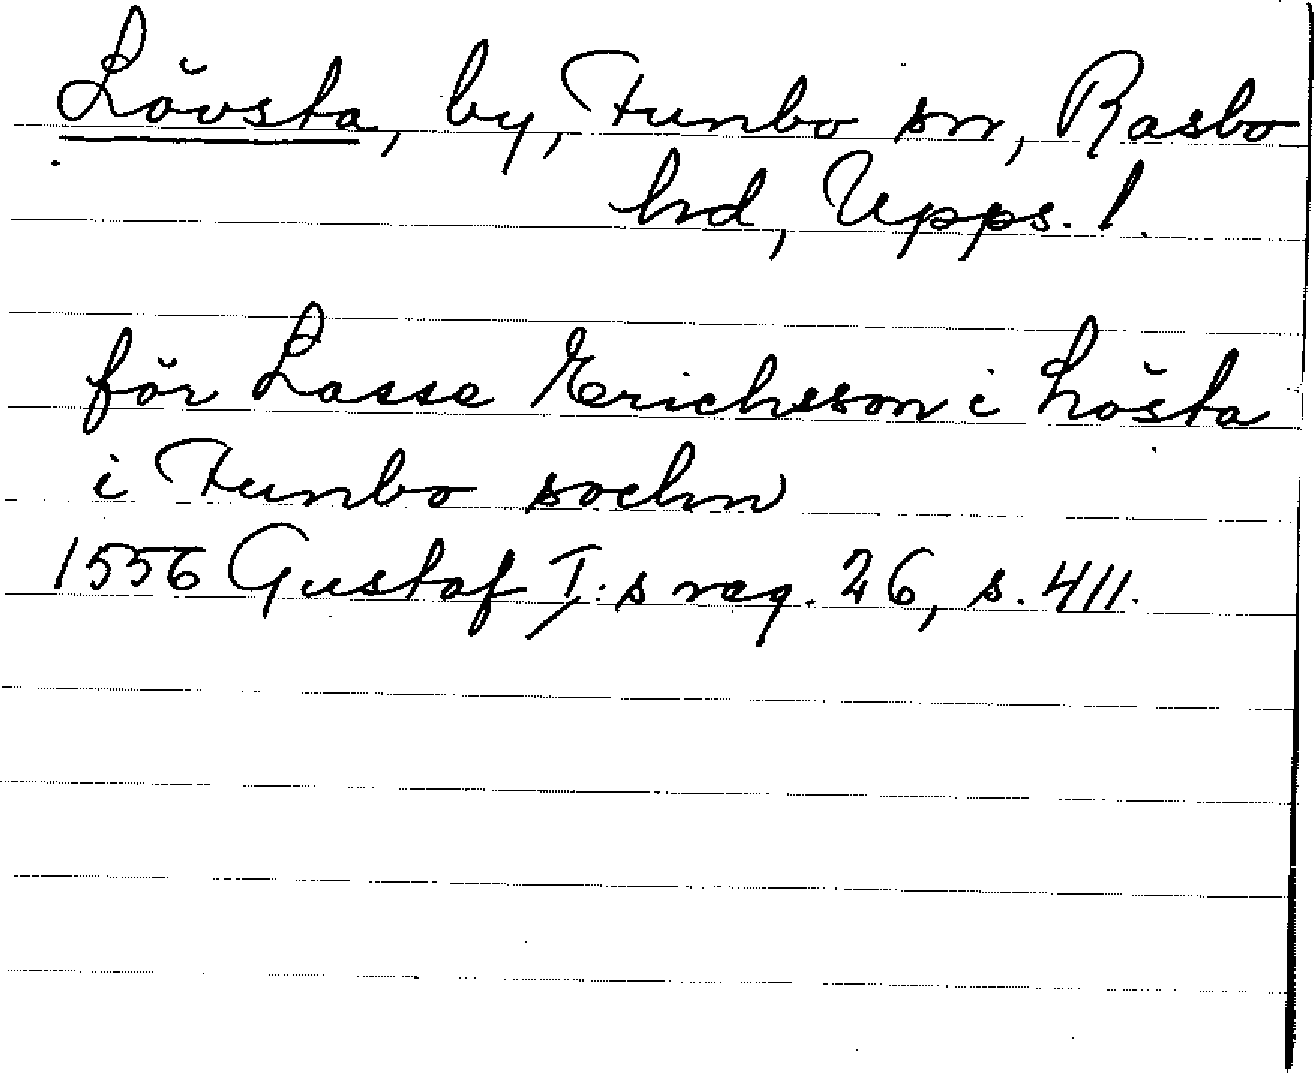 Lövsta, by, Funbo sn, Rasbo
hd, Upps. l.
för Lasse Erichsson i Lösta
i Funbo sochn
1556 Gustaf I:s reg. 26, s. 411.